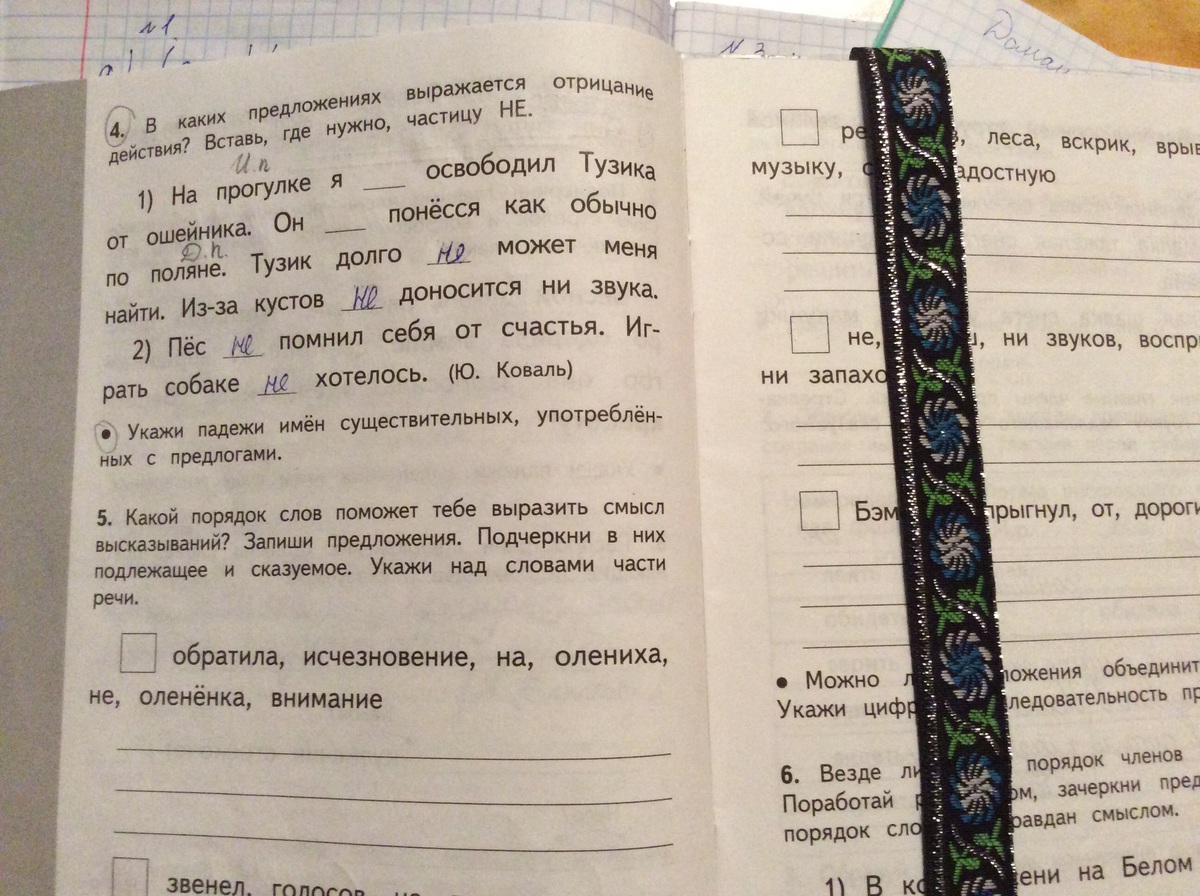 N 1.
Домаш
4. В каких предложениях выражается отрицание
действия? Вставь, где нужно, частицу НЕ.
И.п
1) На прогулке я ___ освободил Тузика
от ошейника. Он ___ понёсся как обычно
Д.п.
по поляне. Тузик долго не может меня
найти. Из-за кустов не доносится ни звука.
2) Пёс не помнил себя от счастья. Иг-
рать собаке не хотелось. (Ю. Коваль)
• Укажи падежи имён существительных, употреблён-
ных с предлогами.
5. Какой порядок слов поможет тебе выразить смысл
высказываний? Запиши предложения. Подчеркни в них
подлежащее и сказуемое. Укажи над словами части
речи.
обратила, исчезновение, на, олениха,
не, оленёнка, внимание
звенел, голосов
леса, вскрик, врыв
музыку, адостную
не, ни звуков, воспри
ни запахо
Бэм прыгнул, от, дороги
• Можно ложения объединит
Укажи цифр ледовательность пр
6. Везде ли порядок членов
Поработай ом, зачеркни пред
порядок сло равдан смыслом.
1) В ко ени на Белом